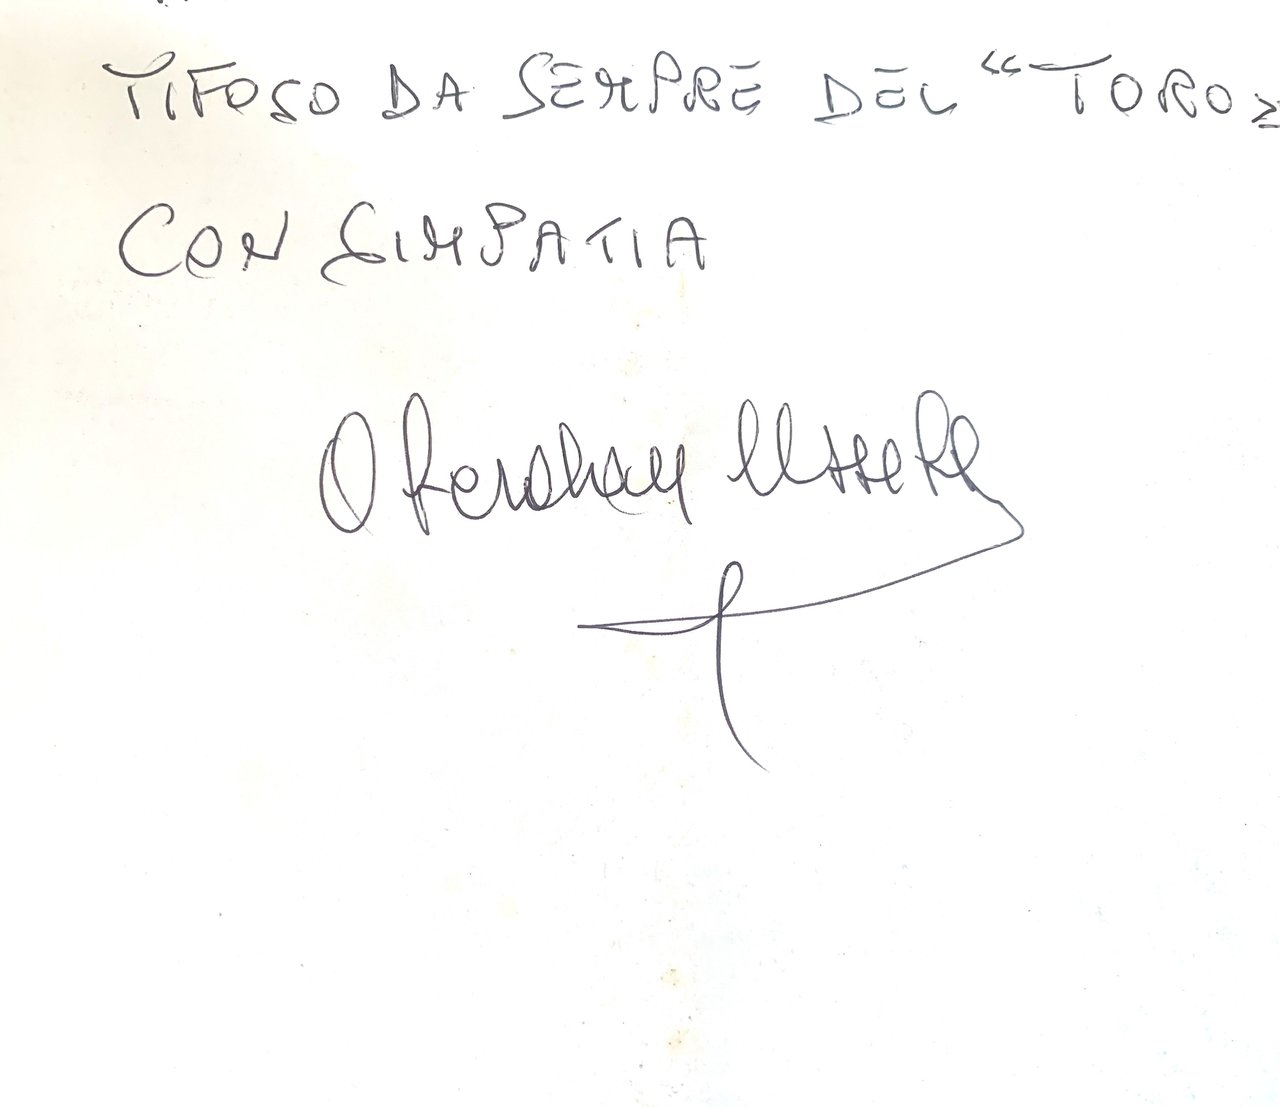 TIFOSO DA SEMPRE DEL “TORO”
CON SIMPATIA